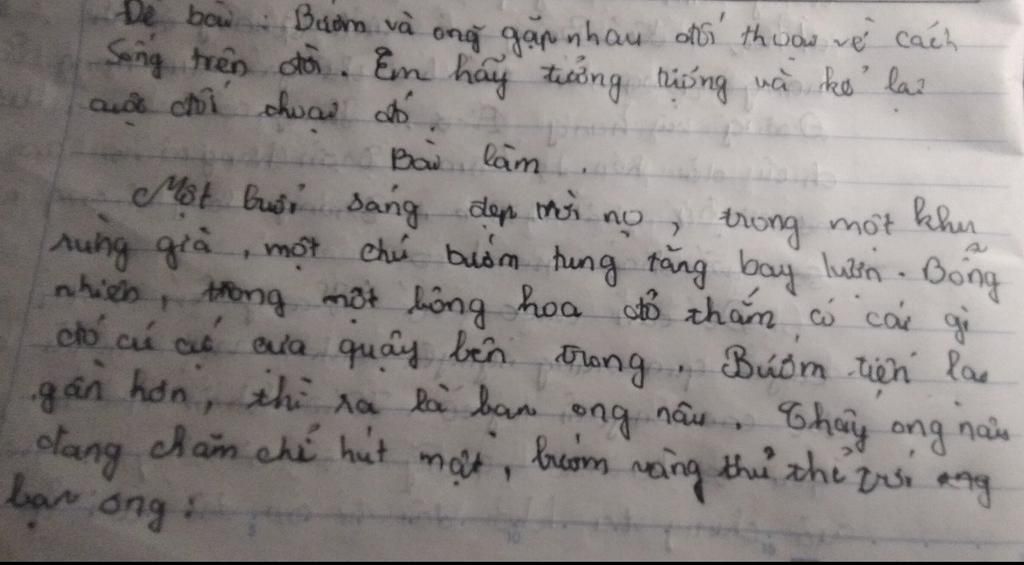 Đề bài : Bướm và ong gặp nhau đối thoại về cách
sống trên đời. Em hãy tưởng tượng và kể lại
cuộc đối thoại đó.
Bài làm.
Một buổi sáng đẹp trời nọ, trong một khu
rừng già, một chú bướm tung tăng bay lượn. Bỗng
nhiên, trong một bông hoa đỏ thắm có cái gì
đó cứ cứ cựa quậy bên trong. Bướm tiến lại
gần hơn, thì ra là bạn ong nâu. Thấy ong nâu
đang chăm chỉ hút mật, bướm vàng thủ thỉ với ong
bạn ong: